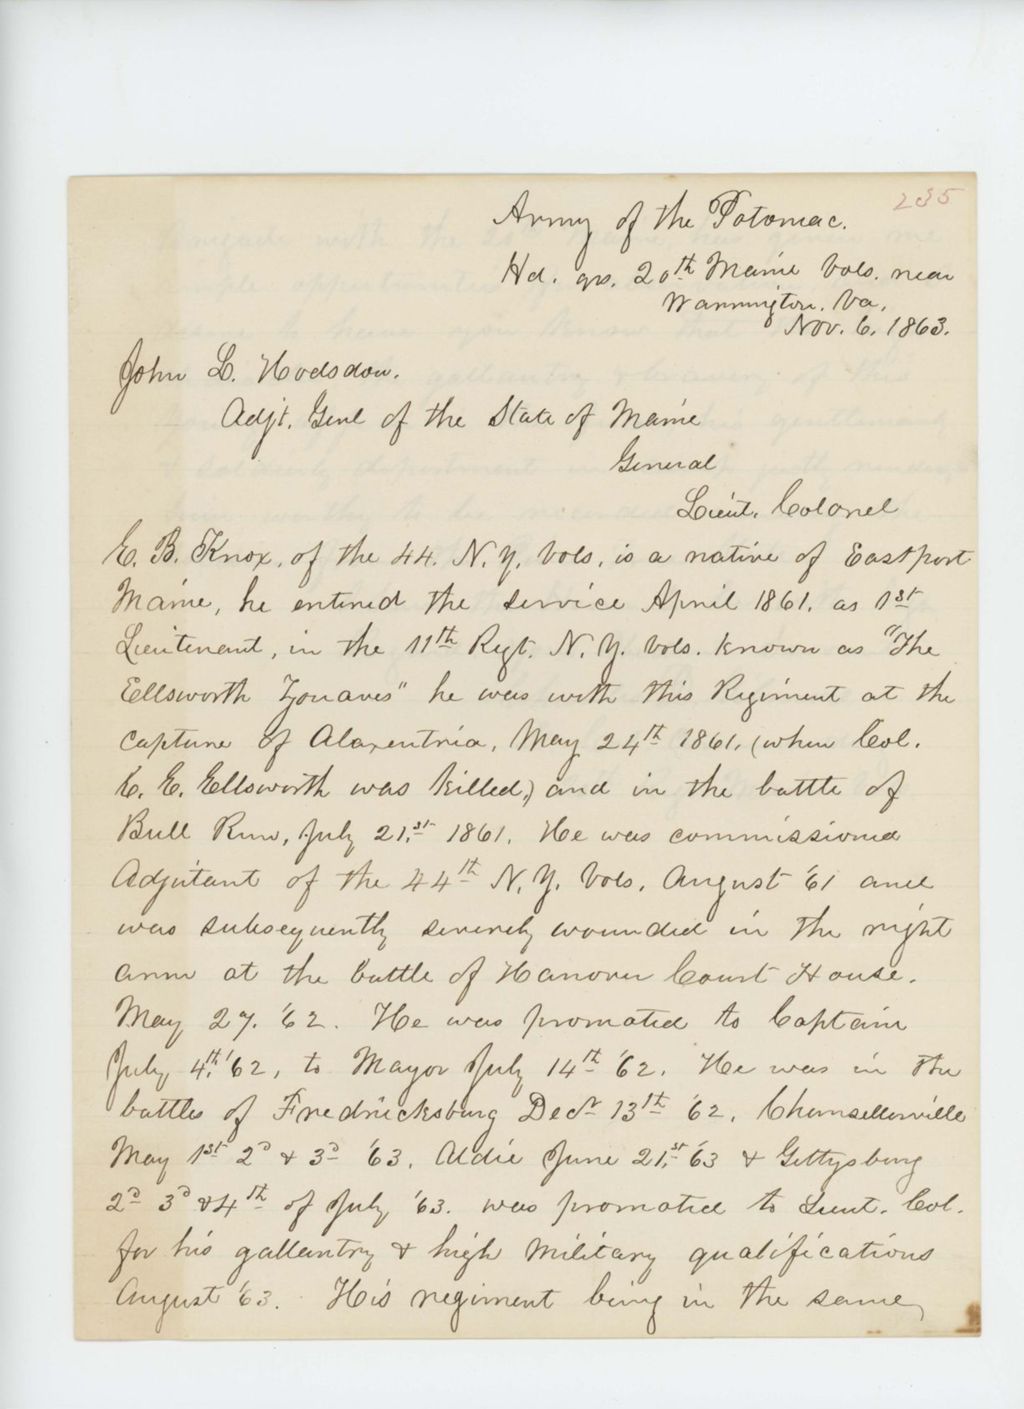 235
Army of the Potomac.
Hd. qrs. 20th Maine Vols. near
Warrington. Va.
Nov. 6. 1863.
John L. Hodsdon.
Adjt. Genl of the State of Maine
General
Lieut. Colonel
E. B. Knox, of the 44. N. Y. Vols, is a native of Eastport
Maine, he entered the service April 1861. as 1st
Lieutenant, in the 11th Regt. N. Y. Vols. known as "The
Ellsworth Zouaves" he was with this Regiment at the
capture of Alaxentria, May 24th 1861, (when Col.
E. E. Ellsworth was killed,) and in the battle of
Bull Run, July 21,st 1861. He was commissioned
Adjutant of the 44th N. Y. Vols, August '61 and
was subsequently severely wounded in the right
arm at the battle of Hanover Court House.
May 27. '62. He was promoted to Captain
July 4,th '62, to Mayor July 14th '62. He was in the
battles of Fredricksburg Decr 13th '62, Chansellorville
May 1st 2d & 3d '63, Aldie June 21,st '63 & Gettysburg
2d 3d & 4th of July '63. was promoted to Lieut. Col.
for his gallantry & high military qualifications
August '63. His regiment being in the same